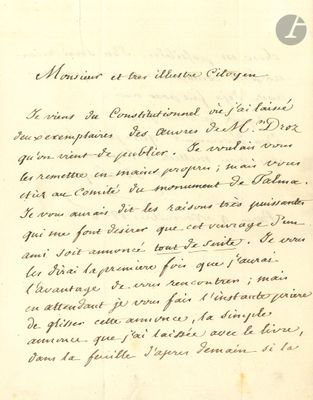 Monsieur et très illustre Citoyen
Je viens du Constitutionnel où j'ai laissé
deux exemplaires des œuvres de M. Droz
qu'on vient de publier. Je voulais vous
les remettre en mains propres; mais vous
étiez au Comité du monument de Palma.
Je vous aurais dit les raisons très puissantes
qui me font desirer que cet ouvrage d'un
ami soit annoncé tout de suite. Je vous
les dirai la premiere fois que j'aurai
l'avantage de vous rencontrer; mais
en attendant je vous fais l'instante priere
de glisser cette annonce, la simple
annonce que j'ai laissée avec le livre,
dans la feuille d'apres demain si la